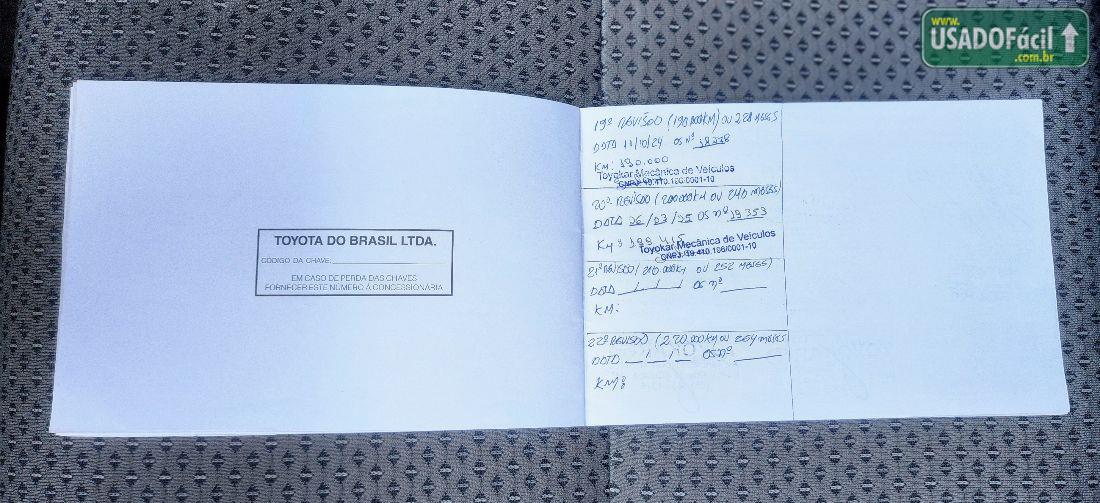 www.
USADOFácil
.com.br
TOYOTA DO BRASIL LTDA.
CÓDIGO DA CHAVE:
EM CASO DE PERDA DAS CHAVES
FORNECER ESTE NÚMERO À CONCESSIONÁRIA
19ª REVISÃO (190.000KM) OU 228 MESES
DATA 11/10/24 OS Nº
KM: 190.000
Toyokar Mecânica de Veículos
CNPJ: 10.410.186/0001-10
20ª REVISÃO (200.000KM OU 240 MESES)
DATA 26/03/25 OS nº 19353
KM: 199.415
Toyokar Mecânica de Veículos
CNPJ: 10.410.186/0001-10
21ª REVISÃO (210.000KM OU 252 MESES)
DATA __/__/__ OS nº ____
KM:
22ª REVISÃO (220.000KM OU 264 MESES)
DATA __/__/__ OS nº ____
KM: